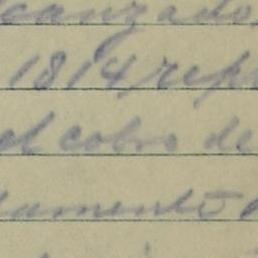 canzado
1814, rep
el cobro de
lamento